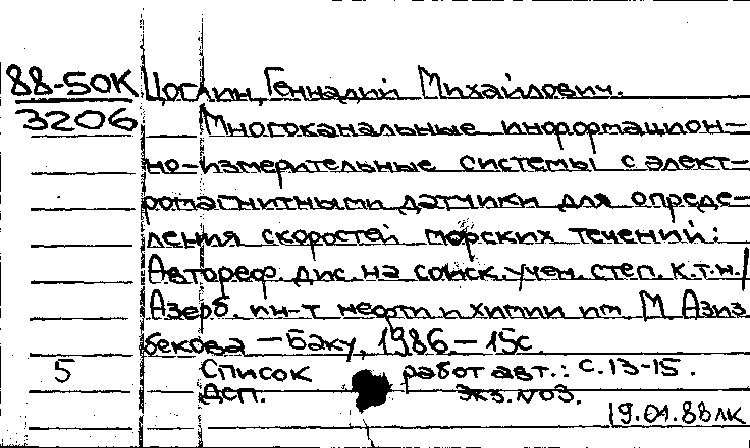 88-50К Цоглин, Геннадий Михайлович.
3206 Многоканальные информацион-
но-измерительные системы с элект-
ромагнитными датчики для опреде-
ления скоростей морских течений:
Автореф. дис. на соиск. учен. степ. к.т.н./
Азерб. ин-т нефти и химии им М Азиз
бекова - Баку, 1986 - 15с.
5 Список работ авт.: с. 13-15.
ДСП. Экз. №03.
19.01.88 лк